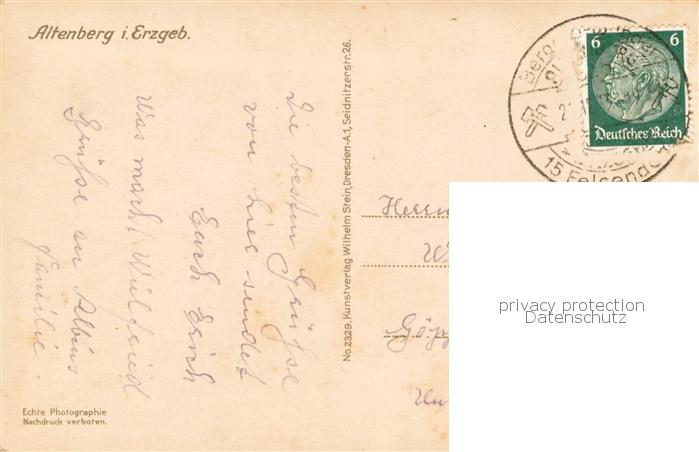 Altenberg i. Erzgeb.
6 6
Deutsches Reich
15 Felsend
Die besten Grüße
von hier sendet
Euch Erich
Was macht Wilfried
Grüße an Albins
Familie.
No. 2329, Kunstverlag Wilhelm Stein, Dresden-A.1, Seidnitzerstr. 26.
Herrn
W
Göpp
Un
privacy protection
Datenschutz
Echte Photographie
Nachdruck verboten.